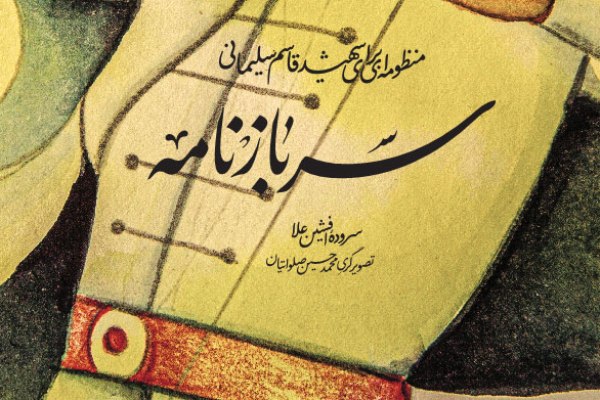 منظومه‌ای برای شهید قاسم سلیمانی
سربازنامه
سروده افشین علا
تصویرگری محمدحسین صلواتیان